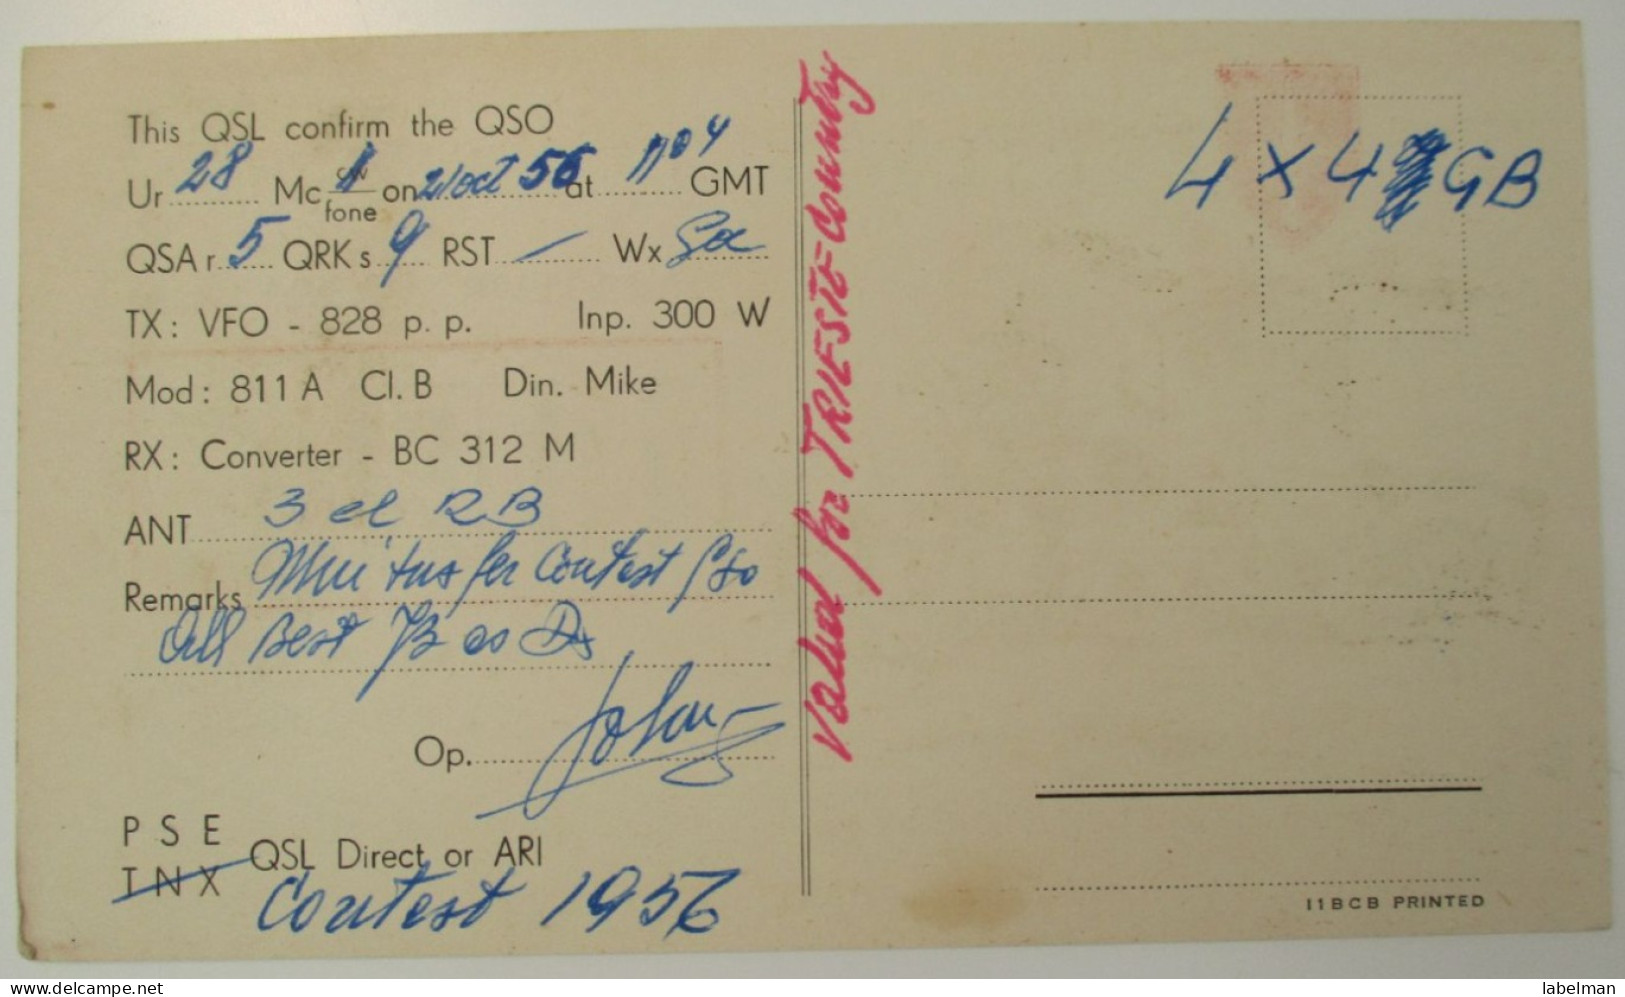 This QSL confirm the QSO
Ur 28 Mc cw fone on 21 oct 56 at 1704 GMT
QSA r. 5 QRK s 9 RST — Wx
TX: VFO - 828 p. p. Inp. 300 W
Mod: 811 A Cl. B Din. Mike
RX: Converter - BC 312 M
ANT 3 el RB
Remarks tnx fer Contest Qso
All Best 73 es Dx
Op. John
PSE
TNX QSL Direct or ARI
Contest 1956
valid for TRIESTE-country
4X4 GB
I1BCB PRINTED
labelman
delcampe.net